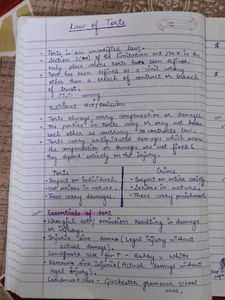 Law of Torts
• Torts is an uncodified law.
• Section 2(m) of the Limitation act 1963 is the
only place where torts has been defined.
• Tort has been defined as a civil wrong
other than a breach of contract or breach
of trust.
• Civil wrong
Act/Omission
• Torts always carry compensation or damages
• The parties in torts may or may not know
each other as contrary to contracts law.
• Torts carry unliquidated damages which means
the compensation or damages are not fixed &
they depend entirely on the injury.
Torts
• Impact on individual.
• Not serious in nature.
• These carry damages.
Crime
• Impact on entire society
• Serious in nature.
• These carry punishment
Essentials of tort
• Wrongful act/ omission resulting in damage
or injury.
• Injuria sine damna (Legal injury without
actual damage).
Landmark case for ↑ - Ashby v White
• Damnum sine Injuria (Actual damage without
legal injury).
Landmark case - Glouchester grammar school
case.